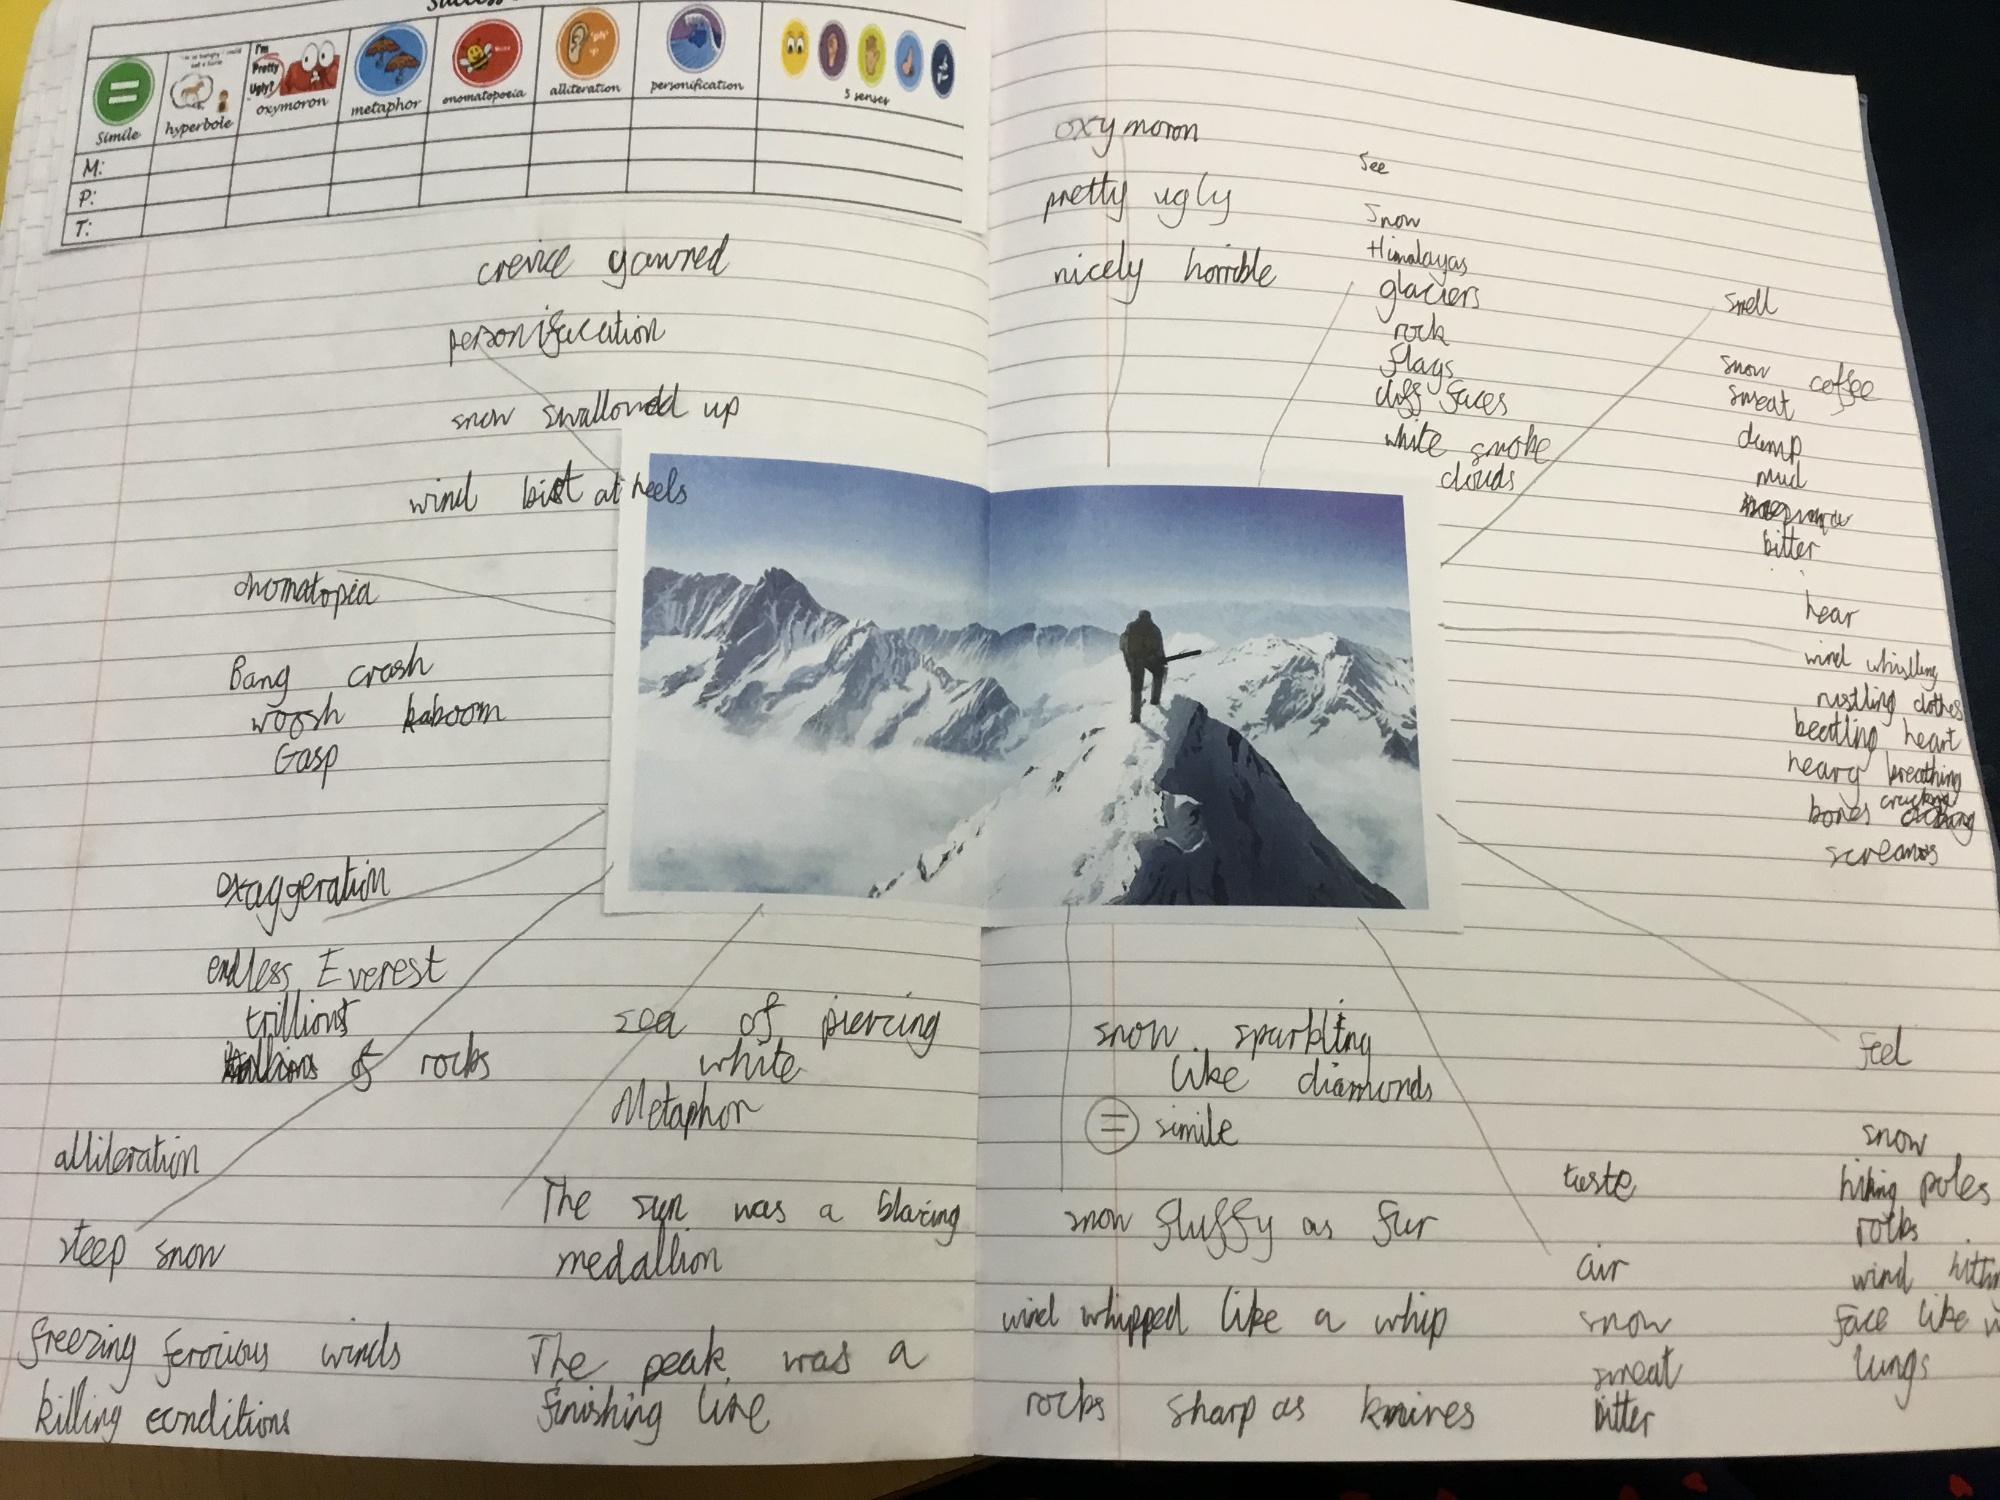 Simile
hyperbole
I'm Pretty Ugly!
oxymoron
metaphor
onomatopoeia
alliteration
personification
5 senses
M:
P:
T:
crevice yawned
personifacation
snow swallowed up
wind bit at heels
onomatopia
Bang crash
woosh kaboom
Gasp
exaggeration
endless Everest
trillions
of rocks
alliteration
steep snow
freezing ferocious winds
killing conditions
sea of piercing
white
Metaphor
The sun was a blazing
medallion
The peak was a
finishing line
oxymoron
pretty ugly
nicely horrible
See
Snow
Himalayas
glaciers
rock
flags
cliff faces
white smoke
clouds
smell
snow coffee
sweat
damp
mud
bitter
hear
wind whistling
rustling clothes
beatling heart
heavy breathing
bones cracking
screams
snow sparkling
like diamonds
= simile
snow fluffy as fur
wind whipped like a whip
rocks sharp as knives
taste
air
snow
sweat
bitter
feel
snow
hiking poles
rocks
wind
face like
lungs